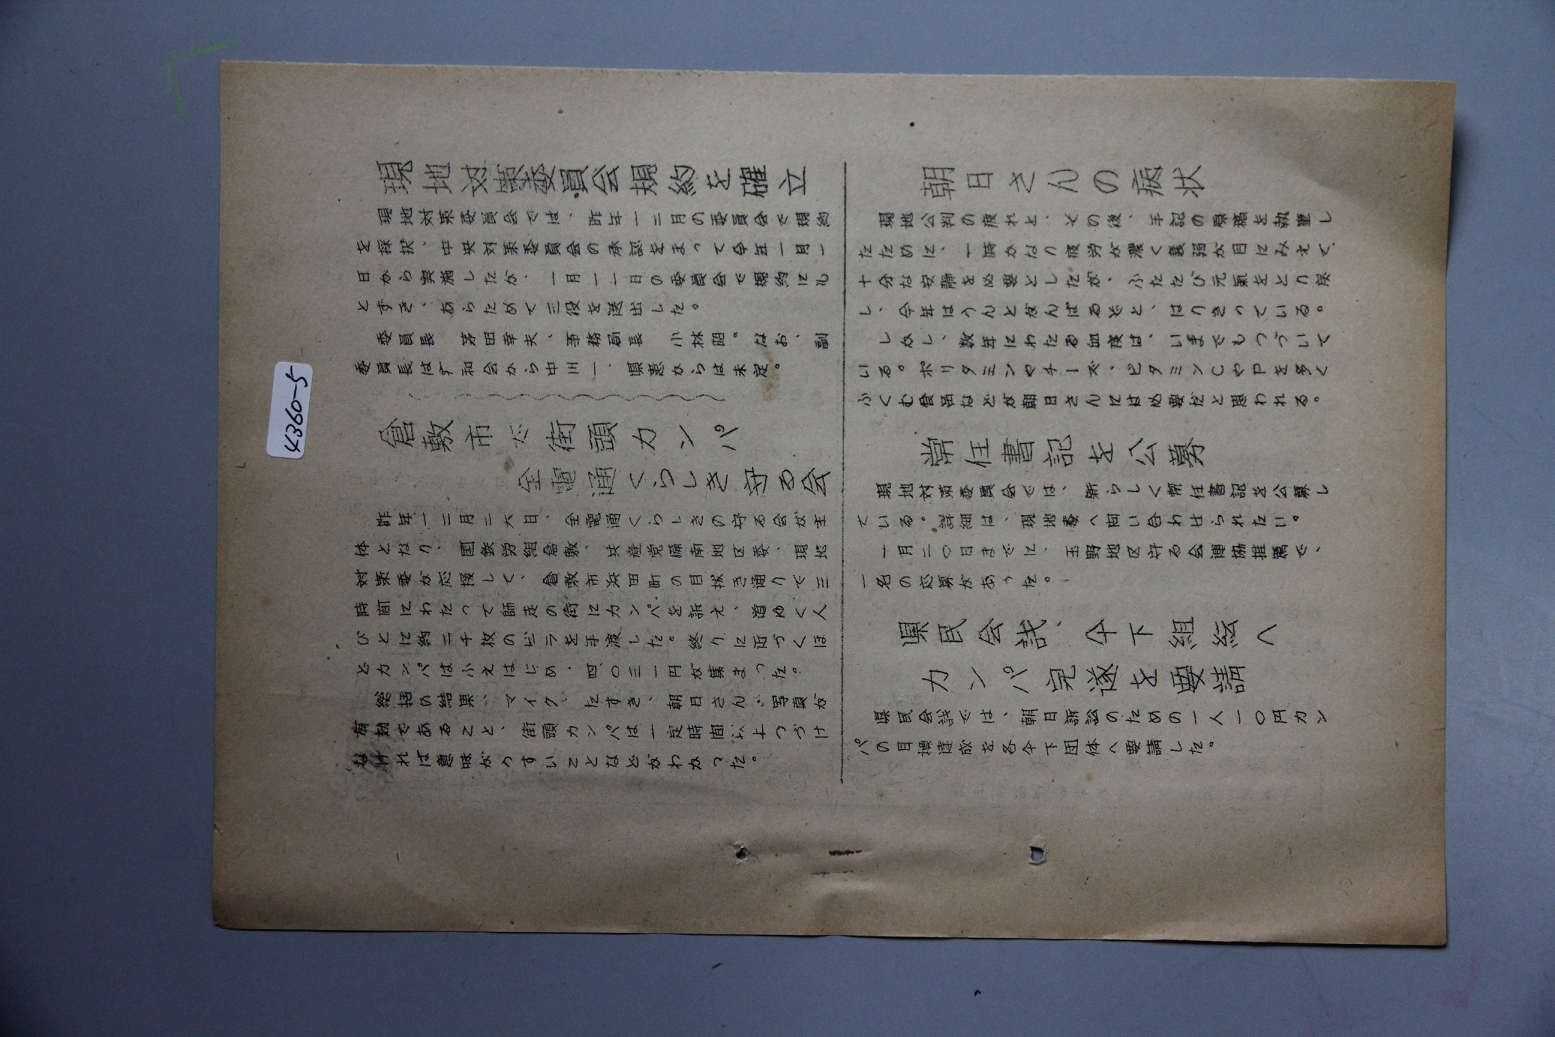 現地対策委員会規約を確立
現地対策委員会では、昨年一二月の委員会で規約
を採択、中央対策委員会の承認をまって今年一月一
日から実施したが、一月一一日の委員会で規約にも
とずき、あらためて三役を選出した。
委員長 芽田幸夫、事務局長 小林昭。なお、副
委員長は平和会から中川一、県患からは未定。
倉敷市で街頭カンパ
全電通くらしき守る会
昨年一二月二六日、全電通くらしきの守る会が主
体となり、国鉄労組倉敷、共産党備南地区委、現地
対策委が応援して、倉敷市浜田町の目抜き通りで三
時間にわたって師走の街にカンパを訴え、道ゆく人
びとに約二千枚のビラを手渡した。終りに近づくほ
どカンパは小えはじめ、四〇三一円が集まった。
総括の結果、マイク、たすき、朝日さんの写真が
有効であること、街頭カンパは一定時間以上つづけ
なければ意味がうすいことなどがわかった。
朝日さんの病状
現地公判の疲れと、その後、手記の原稿を執筆し
たために、一時かなり疲労が濃く衰弱が目にみえて、
十分な安静を必要としたが、ふたたび元気をとり戻
し、今年はうんとがんばるぞと、はりきっている。
しかし、数年にわたる血痰は、いまでもつづいて
いる。ポリタミンやチーズ、ビタミンCやPを多く
ふくむ食品などが朝日さんには必要だと思われる。
常任書記を公募
現地対策委員会では、新らしく常任書記を公募し
ている。詳細は、現地委へ問い合わせられたい。
一月二〇日までに、玉野地区守る会連協推薦で、
一名の応募があった。
県民会議、傘下組織へ
カンパ完遂を要請
県民会議では、朝日訴訟のための一人一〇円カン
パの目標達成を各傘下団体へ要請した。
4360-5